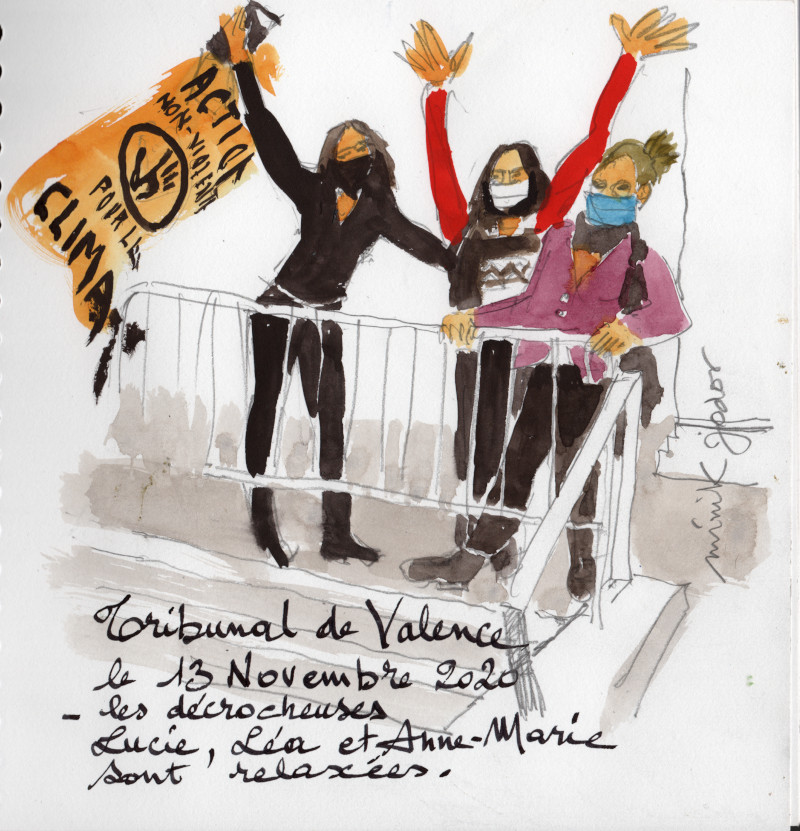 ACTION
NON-VIOLENTE
POUR LE
CLIMA
minik jodor
Tribunal de Valence
le 13 Novembre 2020
- les décrocheuses
Lucie, Léa et Anne-Marie
sont relaxées.